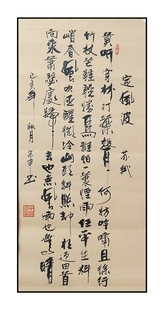 定風波 苏轼
莫听穿林打葉聲 何妨吟嘯且徐行
竹杖芒鞋輕勝馬 誰怕 一蓑煙雨任平生 料
峭春風吹酒醒 微冷 山頭斜照却相迎 回首
向來蕭瑟處 歸去 也無風雨也無晴
己亥年 秋月 书